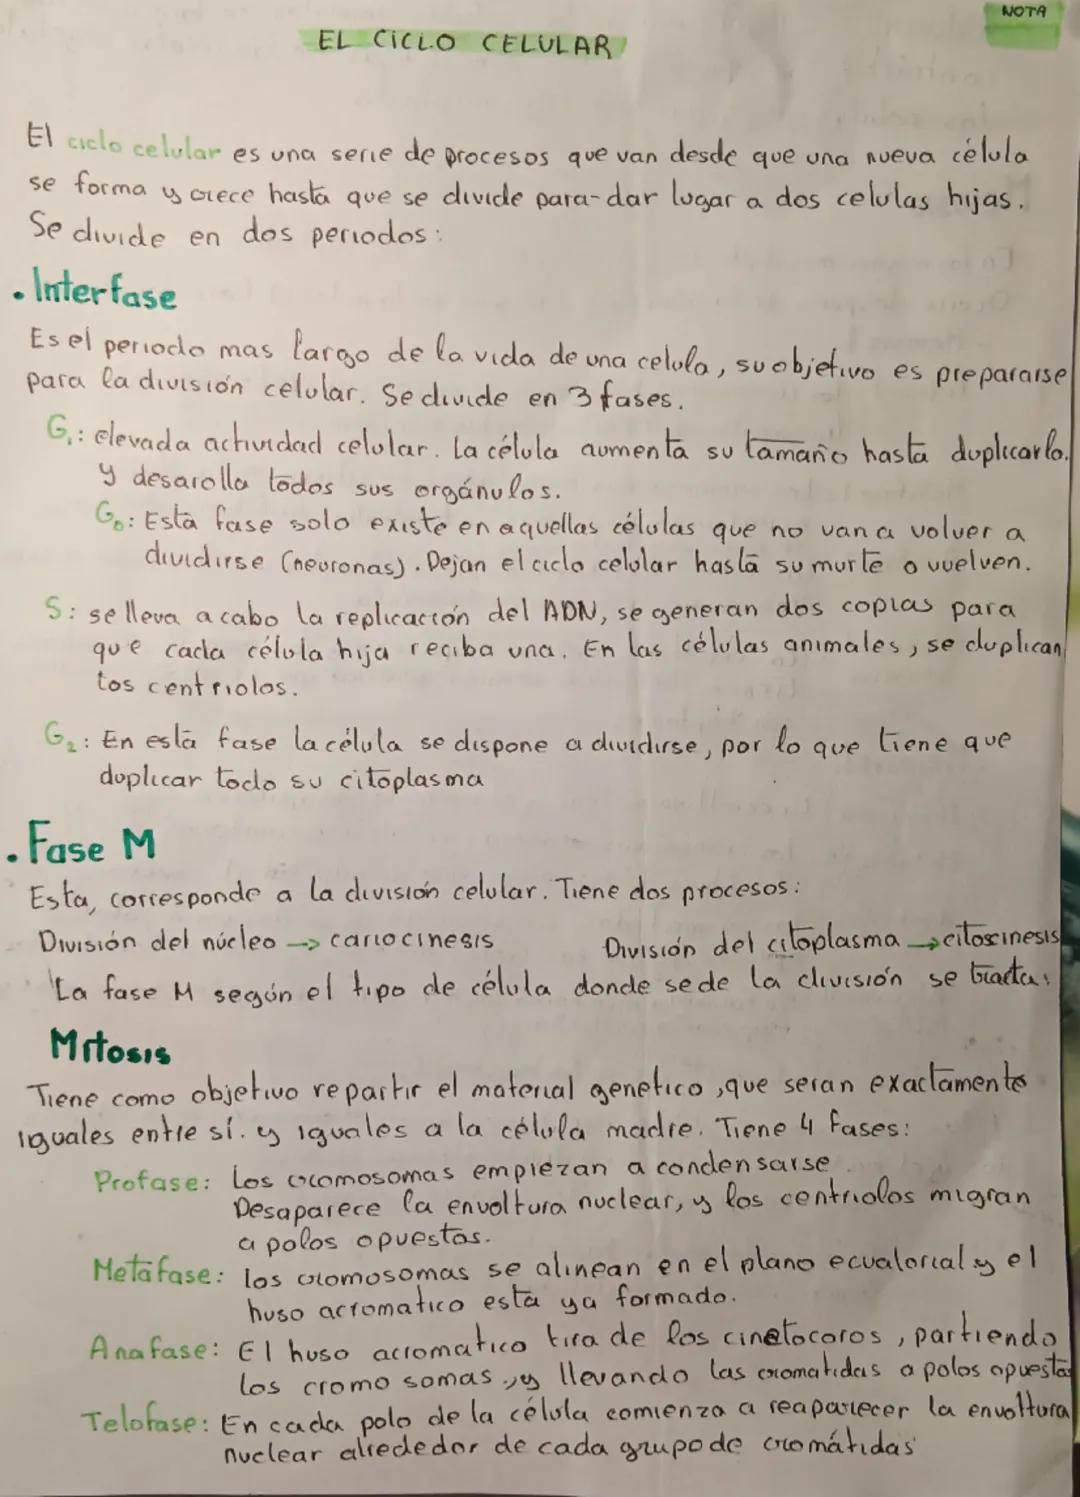 NOTA
EL CICLO CELULAR
El ciclo celular es una serie de procesos que van desde que una nueva célula
se forma y crece hasta que se divide para-dar lugar a dos celulas hijas.
Se divide en dos periodos:
. Interfase
Es el periodo mas largo de la vida de una celula, su objetivo es prepararse
para la división celular. Se divide en 3 fases.
G₁: elevada actividad celular. La célula aumenta su tamaño hasta duplicarlo.
y desarolla todos sus orgánulos.
G₀: Esta fase solo existe en aquellas células que no van a volver a
dividirse (neuronas). Dejan el ciclo celular hasta su murte o vuelven.
S: se lleva a cabo la replicación del ADN, se generan dos copias para
que cada célula hija reciba una. En las células animales, se duplican
los centriolos.
G₂: En esta fase la célula se dispone a dividirse, por lo que tiene que
duplicar todo su citoplasma
. Fase M
Esta, corresponde a la división celular. Tiene dos procesos:
División del núcleo → cariocinesis División del citoplasma → citoscinesis
La fase M según el tipo de célula donde se de la división se tracta:
Mitosis
Tiene como objetivo repartir el material genetico, que seran exactamente
iguales entre sí. y iguales a la célula madre. Tiene 4 fases:
Profase: Los cromosomas empiezan a condensarse.
Desaparece la envoltura nuclear, y los centriolos migran
a polos opuestos.
Metafase: los cromosomas se alinean en el plano ecuatorial y el
huso acromatico esta ya formado.
Anafase: El huso acromatico tira de los cinetocoros, partiendo
los cromosomas, y llevando las cromatidas a polos opuestos
Telofase: En cada polo de la célula comienza a reaparecer la envoltura
nuclear alrededor de cada grupo de cromátidas